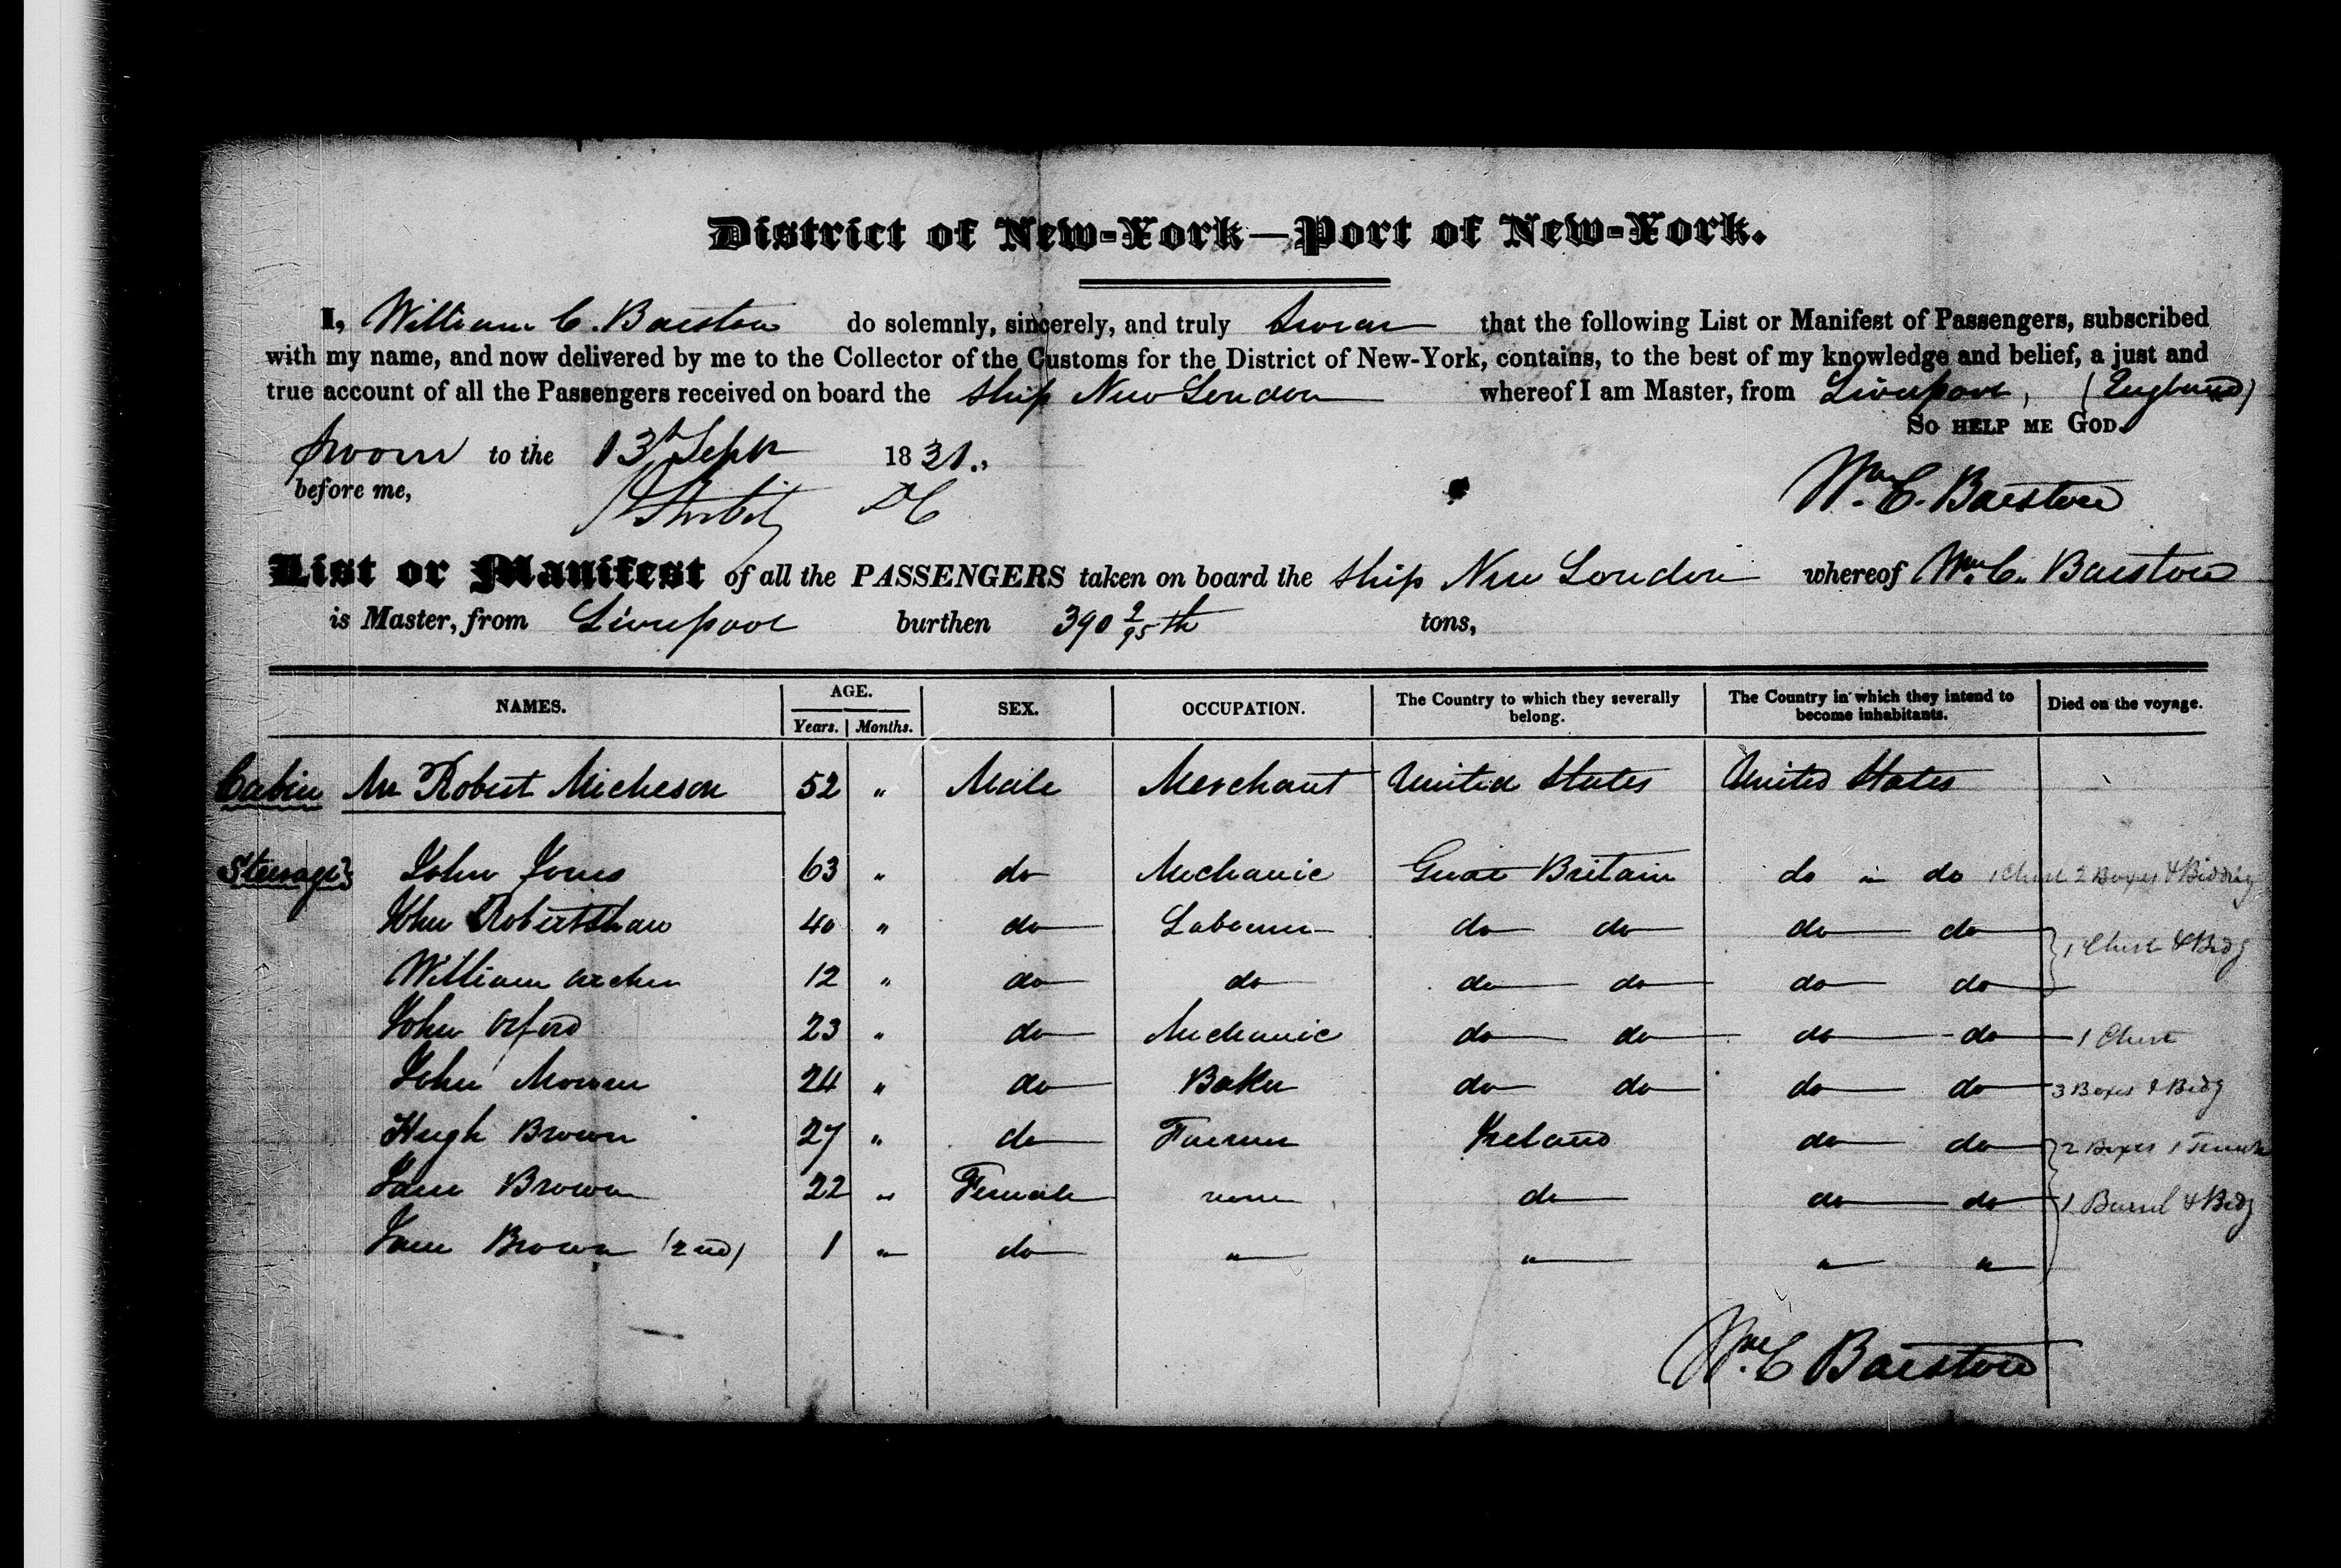 District of New-York—Port of New-York.
I, William C. Barstow do solemnly, sincerely, and truly Swear that the following List or Manifest of Passengers, subscribed
with my name, and now delivered by me to the Collector of the Customs for the District of New-York, contains, to the best of my knowledge and belief, a just and
true account of all the Passengers received on board the Ship New London whereof I am Master, from Liverpool, (England)
So help me God.
Sworn to the 13th Sept 1831.
before me,
Wm. C. Barstow
List or Manifest of all the PASSENGERS taken on board the Ship New London whereof Wm. C. Barstow
is Master, from Liverpool burthen 390 2/95th tons,
NAMES. AGE. Years. Months. SEX. OCCUPATION. The Country to which they severally belong. The Country in which they intend to become inhabitants. Died on the voyage.
Cabin Mr Robert Micheson 52 " Male Merchant United States United States
Steerage John Jones 63 " do Mechanic Great Britain do " do 1 Chest 2 Boxes & Bedding
John Robertshaw 40 " do Labourer do do do do
1 Chest & Bedg
William Archer 12 " do do do do do do
John Orford 23 " do Mechanic do do do do 1 Chest
John 24 " do Baker do do do do 3 Boxes & Bedg
Hugh Brown 27 " do Farmer Ireland do do 2 Boxes 1 Trunk
Jane Brown 22 " Female none do do do 1 Barrel & Bedg
Jane Brown (2nd) 1 " do " " " "
Wm. C Barstow